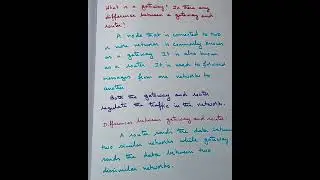 What is a gateway? Is there any
difference between a gateway and
router?
A node that is connected to two
or more networks is commonly known
as a gateway. It is also known
as a router. It is used to forward
messages from one networks to
another.
Both the gateway and router
regulate the traffic in the networks.
Differences between gateway and router.
A router sends the data between
two similar networks while gateway
sends the data between two
dissimilar networks.